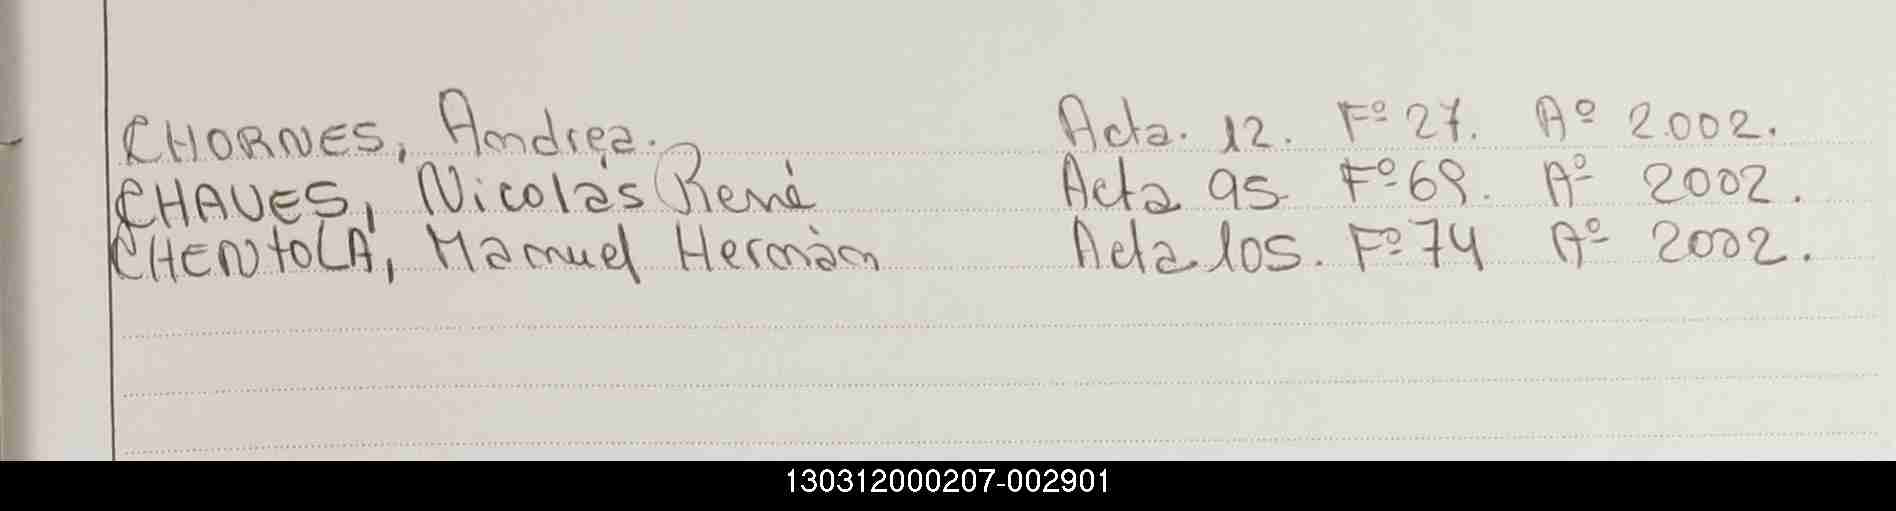 CHORNES, Andrea. Acta. 12. Fº 27. Aº 2.002.
CHAVES, Nicolás René Acta 95 Fº 69. Aº 2002.
CHENTOLA, Manuel Hernán Acta 105. Fº 74 Aº 2002.
130312000207-002901